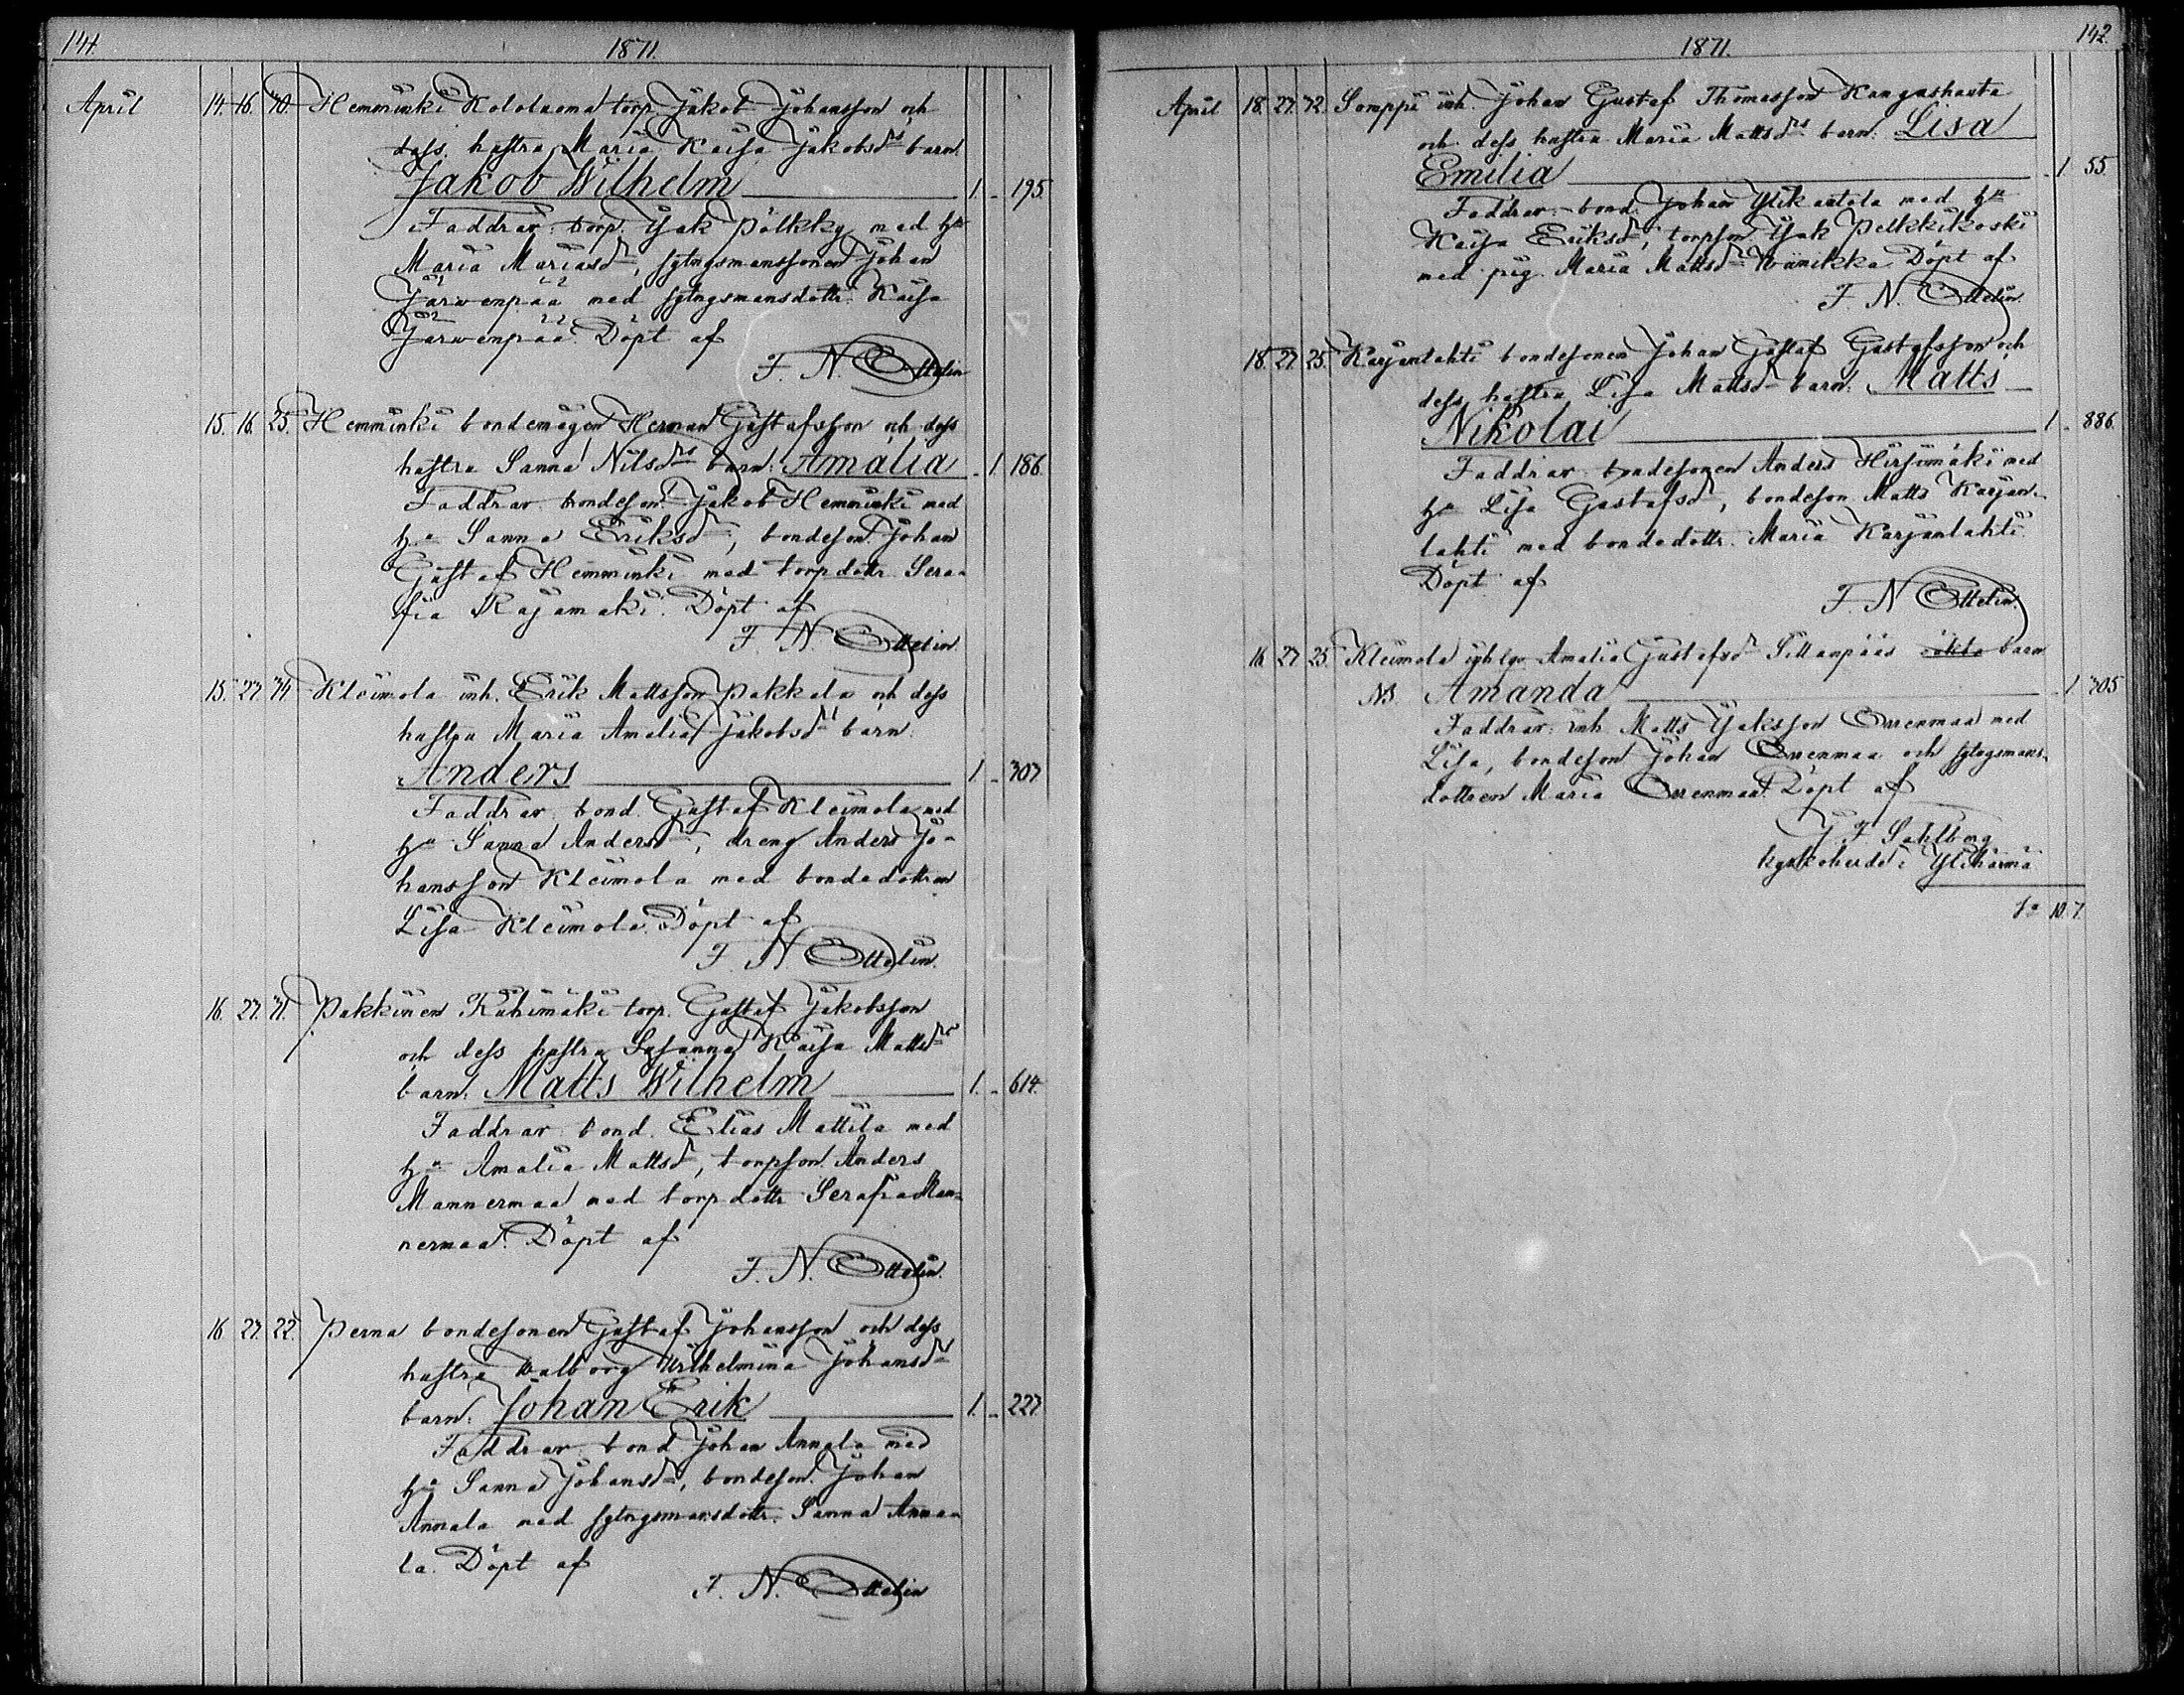 141.
1871.
April 14. 16. 30. Hemminki Kololuoma torp. Jakob Johansson och
dess hustru Maria Kaisa Jakobsdrs barn
Jakob Wilhelm 1. - 195.
Faddrar: torp. Isak Pölkky med h:u
Maria Mariasdr, sytngsmanssonen Johan
Järwenpää med sytngsmansdottr. Kaisa
Järwenpää. Döpt af
F. N. Ottelin
15. 16. 25. Hemminki bondemågen Herman Gustafsson och dess
hustru Sanna Nilsdrs barn: Amalia - 1 186.
Faddrar: bondeson. Jakob Hemminki med
h:u Sanna Eriksdr, bondeson. Johan
Gustaf Hemminki med torpdottr. Sera-
fia Rajamäki. Döpt af
F. N. Ottelin
15. 27. 34. Kleimola inh. Erik Mattsson Pakkala och dess
hustru Maria Amalia Jakobsdrs barn:
Anders 1. - 307
Faddrar: bond. Gustaf Kleimola med
h:u Sanna Andersdr, dreng Anders Jo-
hansson Kleimola med bondedottren
Lisa Kleimola. Döpt af
F. N. Ottelin.
16. 27. 31. Pakkinen Kuhimäki torp. Gustaf Jakobsson
och dess hustru Susanna Kaisa Mattsdrs
barn: Matts Wilhelm 1. - 614.
Faddrar: bond. Elias Mattila med
h:u Amalia Mattsdr, torpson. Anders
Mannermaa med torpdottr. Serafia Man-
nermaa. Döpt af
F. N. Ottelin.
16. 27. 22. Perna bondesonen Gustaf Johansson och dess
hustru Walborg Wilhelmina Johansdrs
barn: Johan Erik 1. - 227
Faddrar: bond. Johan Annala med
h:u Sanna Johansdr, bondeson. Johan
Annala med sytngsmansdottr. Sanna Anna-
la. Döpt af
F. N. Ottelin
142.
1871.
April 18. 27. 32. Somppi inh. Johan Gustaf Thomasson Kangashauta
och dess hustru Maria Mattsdrs barn: Lisa
Emilia - 1 55.
Faddrar: bond. Johan Ylikantola med h:u
Kaisa Eriksdr, torpson. Isak Pelkkikoski
med pig. Maria Mattsdr Wänikka. Döpt af
F. N. Ottelin.
18. 27. 25. Karjanlahti bondesonen Johan Gustaf Gustafsson och
dess hustru Lisa Mattsdrs barn: Matts
Nikolai 1 - 886.
Faddrar: bondesonen Anders Hirsimäki med
h:u Lisa Gustafsdr, bondeson. Matts Karjan-
lahti med bondedottr. Maria Karjanlahti.
Döpt af
F. N. Ottelin.
16. 27. 25. Kleimola Amalia Gustafsdr Sillanpääs oäkta barn
NB. Amanda - 1 305
Faddrar: inh. Matts Isaksson Orrenmaa med
Lisa, bondeson Johan Orrenmaa och sytngsmans-
dottren Maria Orrenmaa. Döpt af
J. F. Sahlberg
kyrkoherde i Ylihärmä
S:a 10. 7.